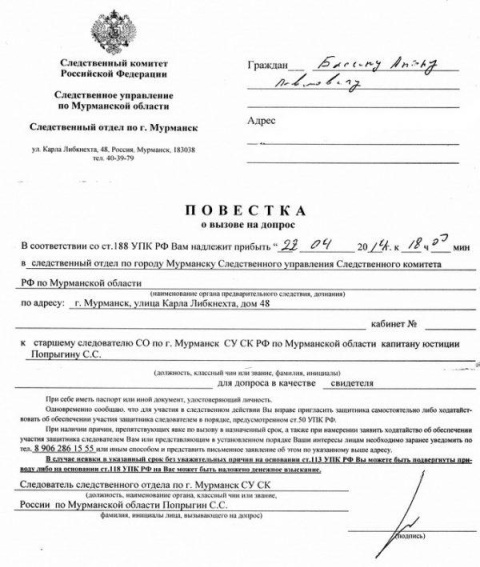 Следственный комитет
Российской Федерации
Следственное управление
по Мурманской области
Следственный отдел по г. Мурманск
ул. Карла Либкнехта, 48, Россия, Мурманск, 183038
тел. 40-39-79
Граждан
Адрес
ПОВЕСТКА
о вызове на допрос
В соответствии со ст.188 УПК РФ Вам надлежит прибыть " 28 04 20 14 г. к 18 ч 00 мин
в следственный отдел по городу Мурманску Следственного управления Следственного комитета
РФ по Мурманской области
(наименование органа предварительного следствия, дознания)
по адресу: г. Мурманск, улица Карла Либкнехта, дом 48
кабинет №
к старшему следователю СО по г. Мурманск СУ СК РФ по Мурманской области капитану юстиции
Попрыгину С.С.
(должность, классный чин или звание, фамилия, инициалы)
для допроса в качестве свидетеля
При себе иметь паспорт или иной документ, удостоверяющий личность.
Одновременно сообщаю, что для участия в следственном действии Вы вправе пригласить защитника самостоятельно либо ходатайст-
вовать об обеспечении участия защитника следователем в порядке, предусмотренном ст.50 УПК РФ.
При наличии причин, препятствующих явке по вызову в назначенный срок, а также при намерении заявить ходатайство об обеспечении
участия защитника следователем Вам или представляющим в установленном порядке Ваши интересы лицам необходимо заранее уведомить по
тел. 8 906 286 15 55 или иным способом и представить письменное заявление об этом по указанному выше адресу.
В случае неявки в указанный срок без уважительных причин на основании ст.113 УПК РФ Вы можете быть подвергнуты при-
воду либо на основании ст.118 УПК РФ на Вас может быть наложено денежное взыскание.
Следователь следственного отдела по г. Мурманск СУ СК
(должность, наименование органа, классный чин или звание,
России по Мурманской области Попрыгин С.С.
фамилия, инициалы лица, вызывающего на допрос)
(подпись)